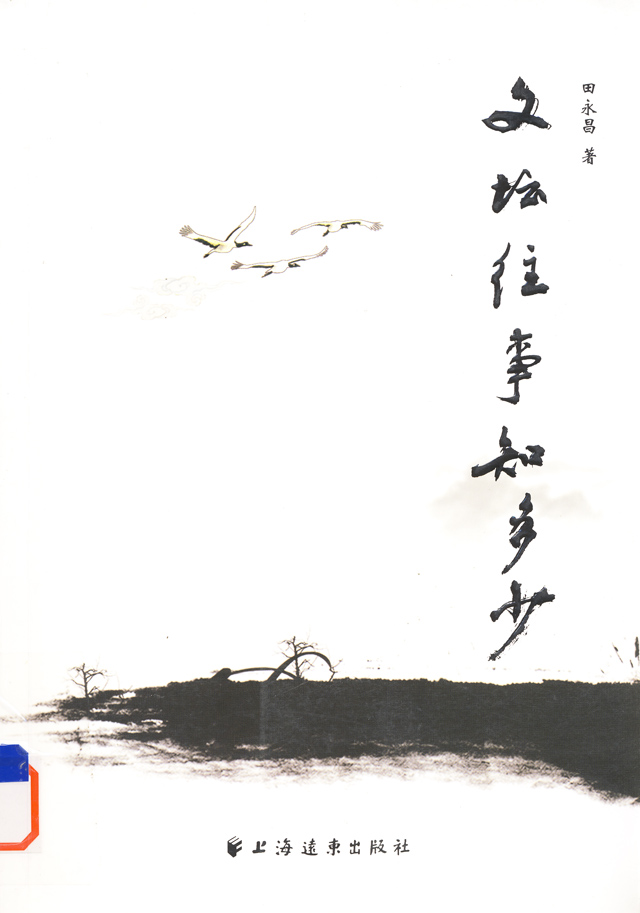 田永昌 著
文坛往事知多少
上海遠東出版社